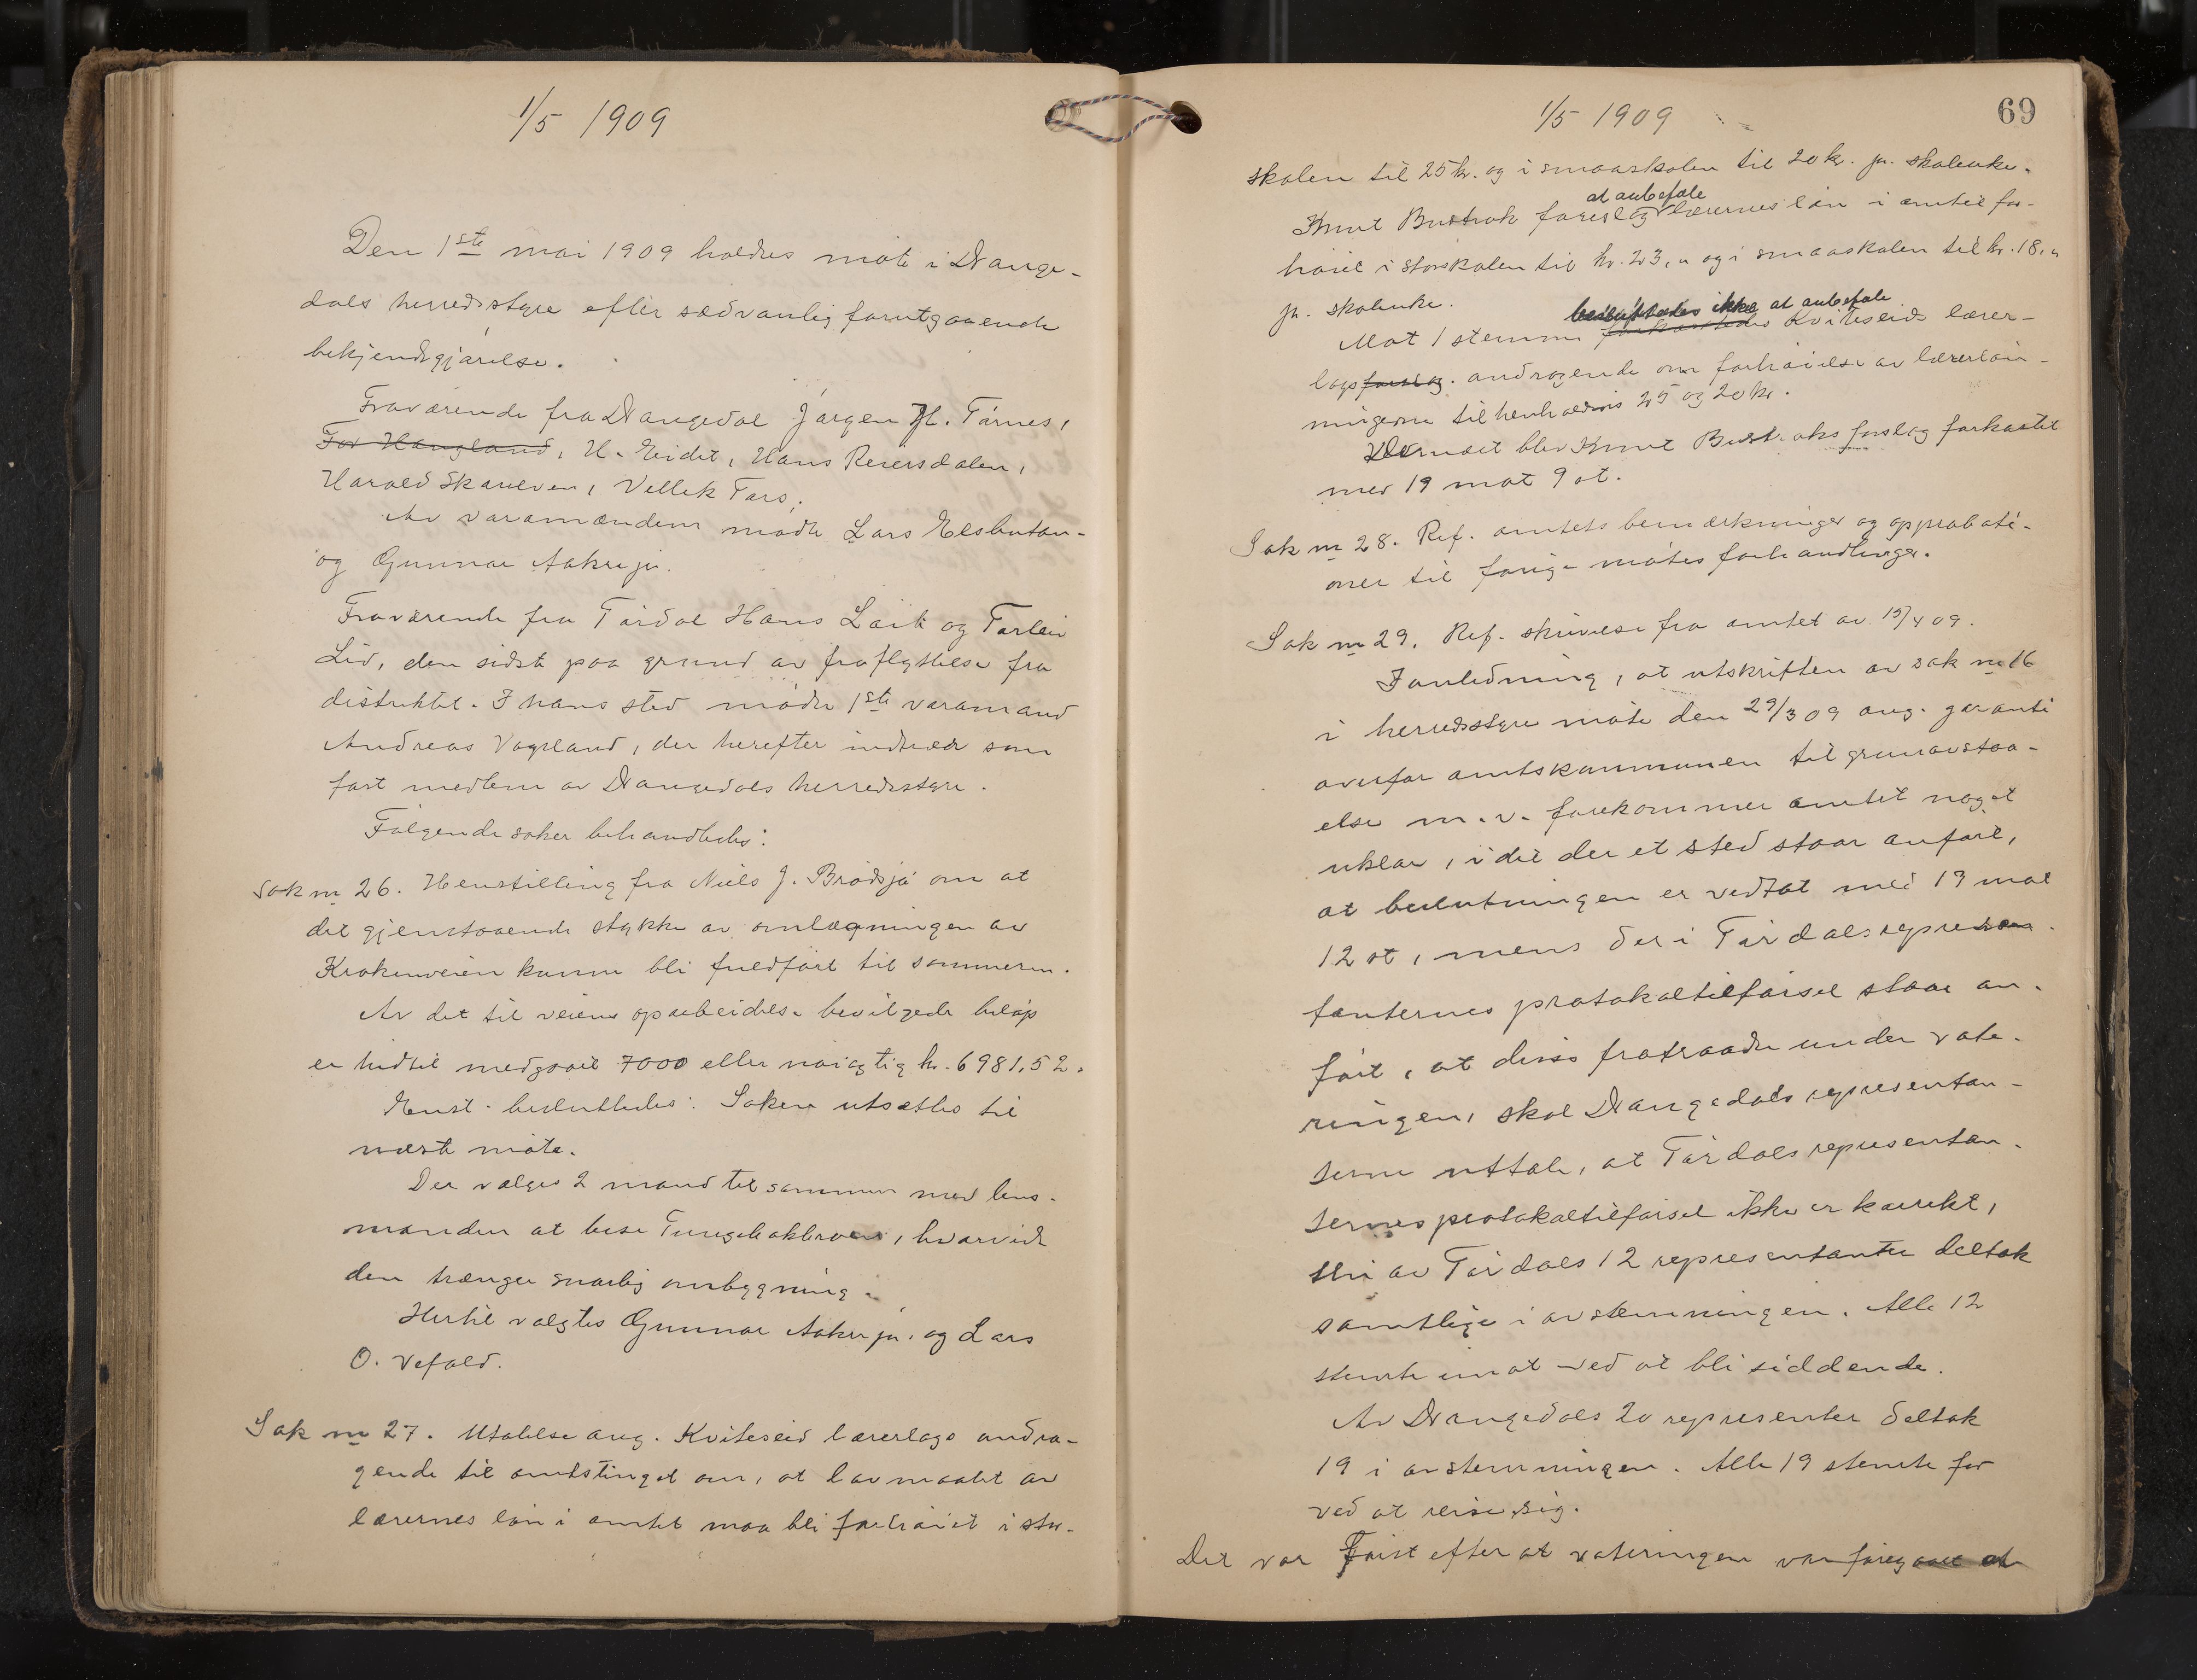 1/5 1909
Den 1ste mai 1909 holdtes møte i Drange-
dals herredsstyre efter sædvanlig forutgaaende
bekjendtgjørelse.
Fraværende fra Drangedal Jørgen H. Tørnes,
Tor Haugland, H. Eidet, Hans Reiersdalen,
Harald Skauen, Vellek Tors.
Av varamændene møtte Lars Elsbutan-
og Gunnar Aakre jr.
Fraværende fra Tørdal Hans Løite og Torleiv
Lid, den sidste paa grund av fraflyttelse fra
distriktet. I hans sted møder 1ste varamand
Andreas Vogsland, der herefter indtræder som
fast medlem av Drangedals herredsstyre.
Følgende saker behandledes:
Sak nr 26. Henstilling fra Niels J. Brødsjø om at
det gjenstaaende stykke av omlægningen av
Krokenveien kunne bli fuldført til sommeren.
Av det til veiens oparbeidelse bevilgede beløp
er hidtil medgaaet 7000 eller nøiagtig kr. 6981,52.
Enst. besluttedes: Saken utsættes til
næste møte.
Der vælges 2 mand til sammen med lens-
manden at bese Tungebakbroen, hvorvidt
den trænger snarlig ombygning.
Hertil valgtes Gunnar Aakre jr. og Lars
O. Vefald.
Sak nr 27. Utalelse ang. Kviteseid lærerlags andra-
gende til amtstinget om, at lavmaalet av
lærernes løn i amtet maa bli forhøiet i stor-
1/5 1909
69
skolen til 25 kr. og i smaaskolen til 20 kr. pr. skoleuke.
at anbefale
Knut Bustrak foreslog lærernes løn i amtet for-
høiet i storskolen til kr. 23,„ og i smaaskolen til kr. 18,„
pr. skoleuke.
besluttedes ikke at anbefale
Mot 1 stemme forkastedes Kviteseids lærer-
lags forslag. andragende om forhøielse av lærerløn-
ningerne til henholdsvis 25 og 20 kr.
Dernæst blev Knut Bustraks forslag forkastet
med 19 mot 9 st.
Sak nr 28. Ref. amtets bemærkninger og approbati-
oner til forrige møtes forhandlinger.
Sak nr 29. Ref. skrivelse fra amtet av 15/4 09.
I anledning, at utskriften av sak nr 16
i herredsstyre møte den 29/3 09 ang. garanti
overfor amtskommunen til grunavstaa-
else m. v. forekommer amtet noget
uklar, i det der et sted staar anført,
at beslutningen er vedtat med 19 mot
12 st, mens der i Tørdals represen-
tanternes protokoltilførsel staar an-
ført, at disse fratraadte under vote-
ringen, skal Drangedals representan-
terne uttale, at Tørdals representan-
ternes protokoltilførsel ikke er korrekt,
thi av Tørdals 12 representanter deltok
samtlige i avstemningen. Alle 12
stemte imot ved at bli siddende.
Av Drangedals 20 represent​er deltok
19 i avstemningen. Alle 19 stemte for
ved at reise sig.
Det var først efter at voteringen var foregaaet at